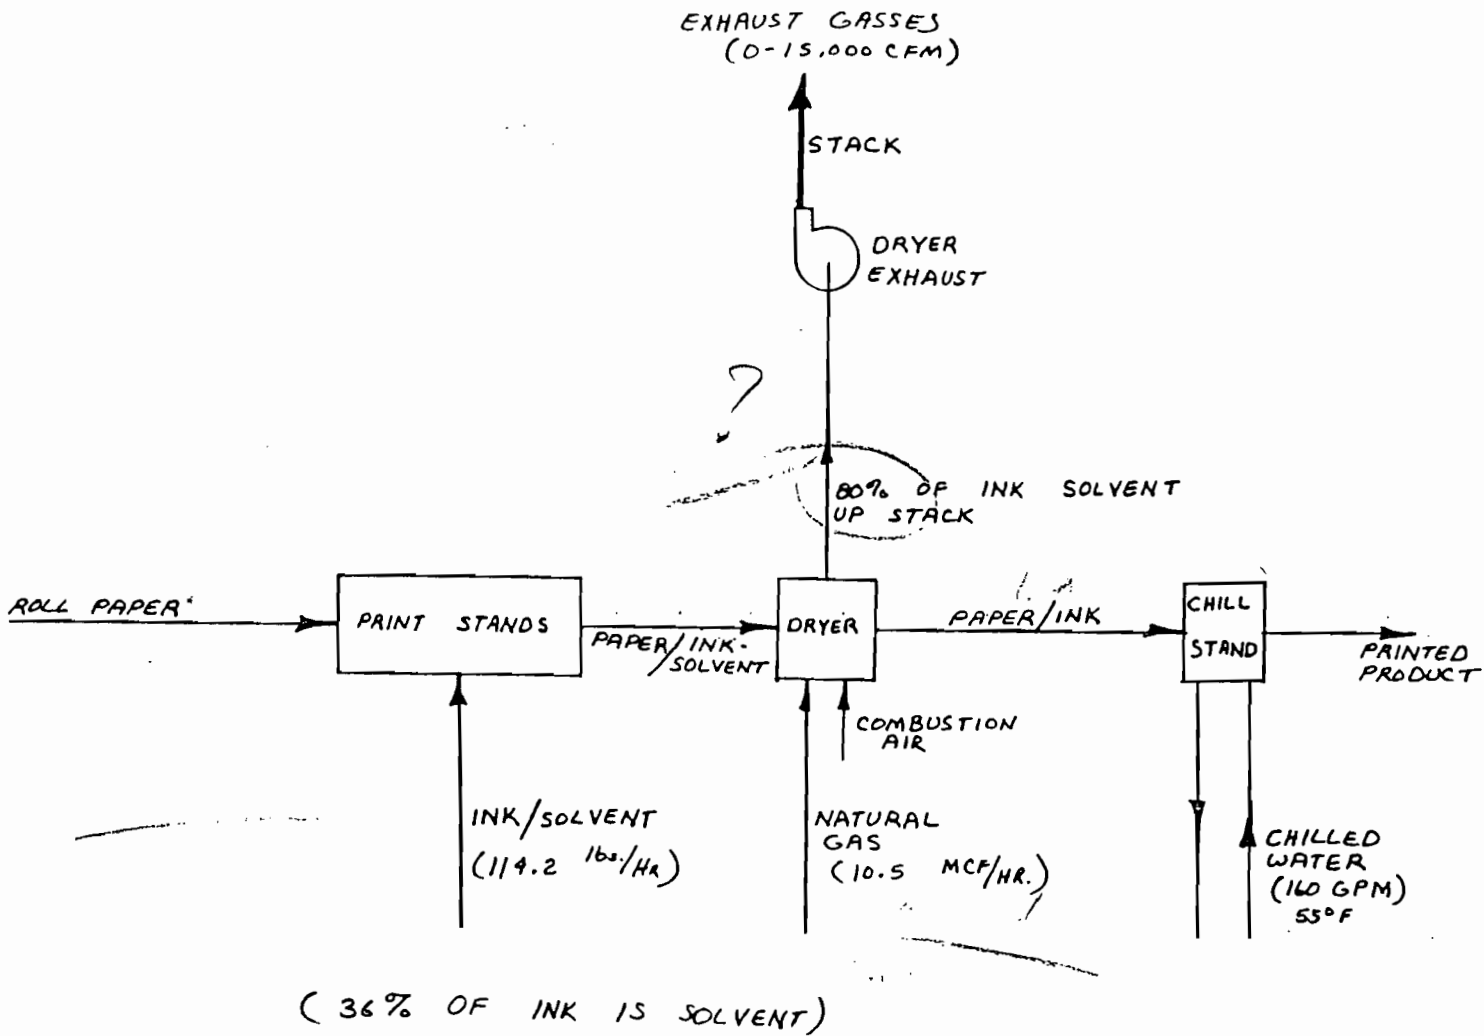 EXHAUST GASSES
(0-15,000 CFM)
STACK
DRYER
EXHAUST
?
80% OF INK SOLVENT
UP STACK
ROLL PAPER
PRINT STANDS
PAPER/INK-
SOLVENT
DRYER
PAPER/INK
CHILL
STAND
PRINTED
PRODUCT
COMBUSTION
AIR
INK/SOLVENT
(114.2 lbs./HR)
NATURAL
GAS
(10.5 MCF/HR.)
CHILLED
WATER
(160 GPM)
55°F
(36% OF INK IS SOLVENT)